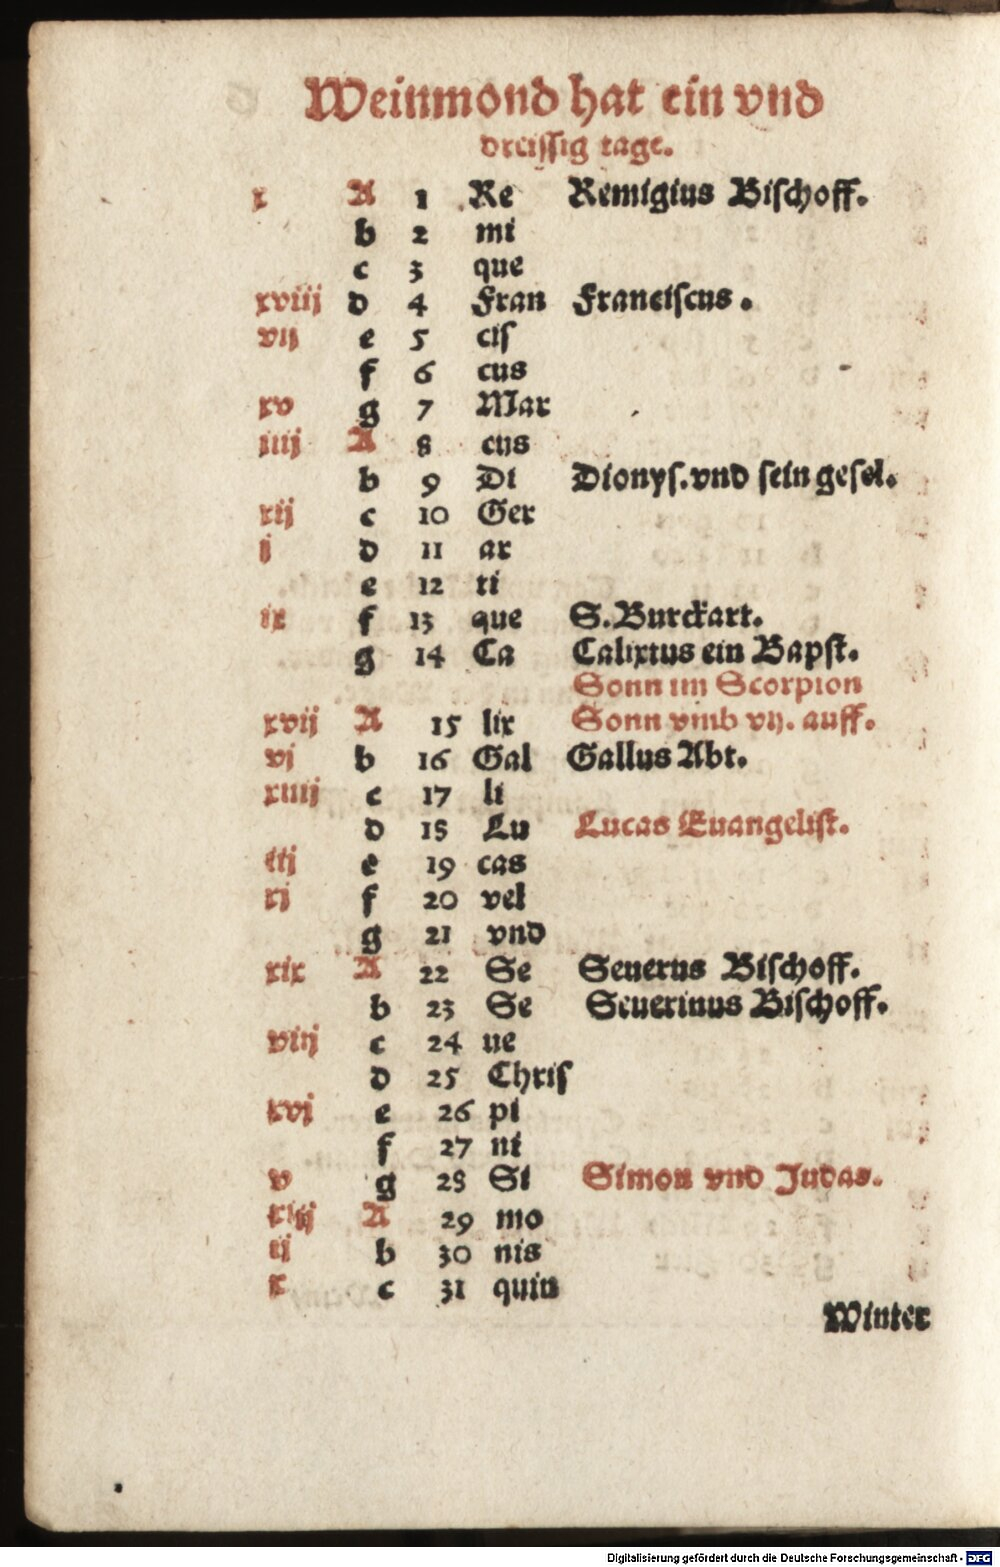 Weinmond hat ein vnd
dreiſſig tage.
x A 1 Re Remigius Biſchoff.
b 2 mi
c 3 que
xviij d 4 Fran Franciſcus.
vij e 5 ciſ
f 6 cus
xv g 7 Mar
iiij A 8 cus
b 9 Di Dionyſ. vnd ſein geſel.
xij c 10 Ger
j d 11 ar
e 12 ti
ix f 13 que S. Burckart.
g 14 Ca Calixtus ein Bapſt.
Sonn im Scorpion
xvij A 15 lix Sonn vmb vij. auff.
vj b 16 Gal Gallus Abt.
xiiij c 17 li
d 18 Lu Lucas Euangeliſt.
iij e 19 cas
xj f 20 vel
g 21 vnd
xix A 22 Se Seuerus Biſchoff.
b 23 Se Seuerinus Biſchoff.
viij c 24 ue
d 25 Chriſ
xvj e 26 pi
f 27 ni
v g 28 Si Simon vnd Judas.
xiij A 29 mo
ij b 30 nis
x c 31 quin
Winter
Digitalisierung gefördert durch die Deutsche Forschungsgemeinschaft - DFG